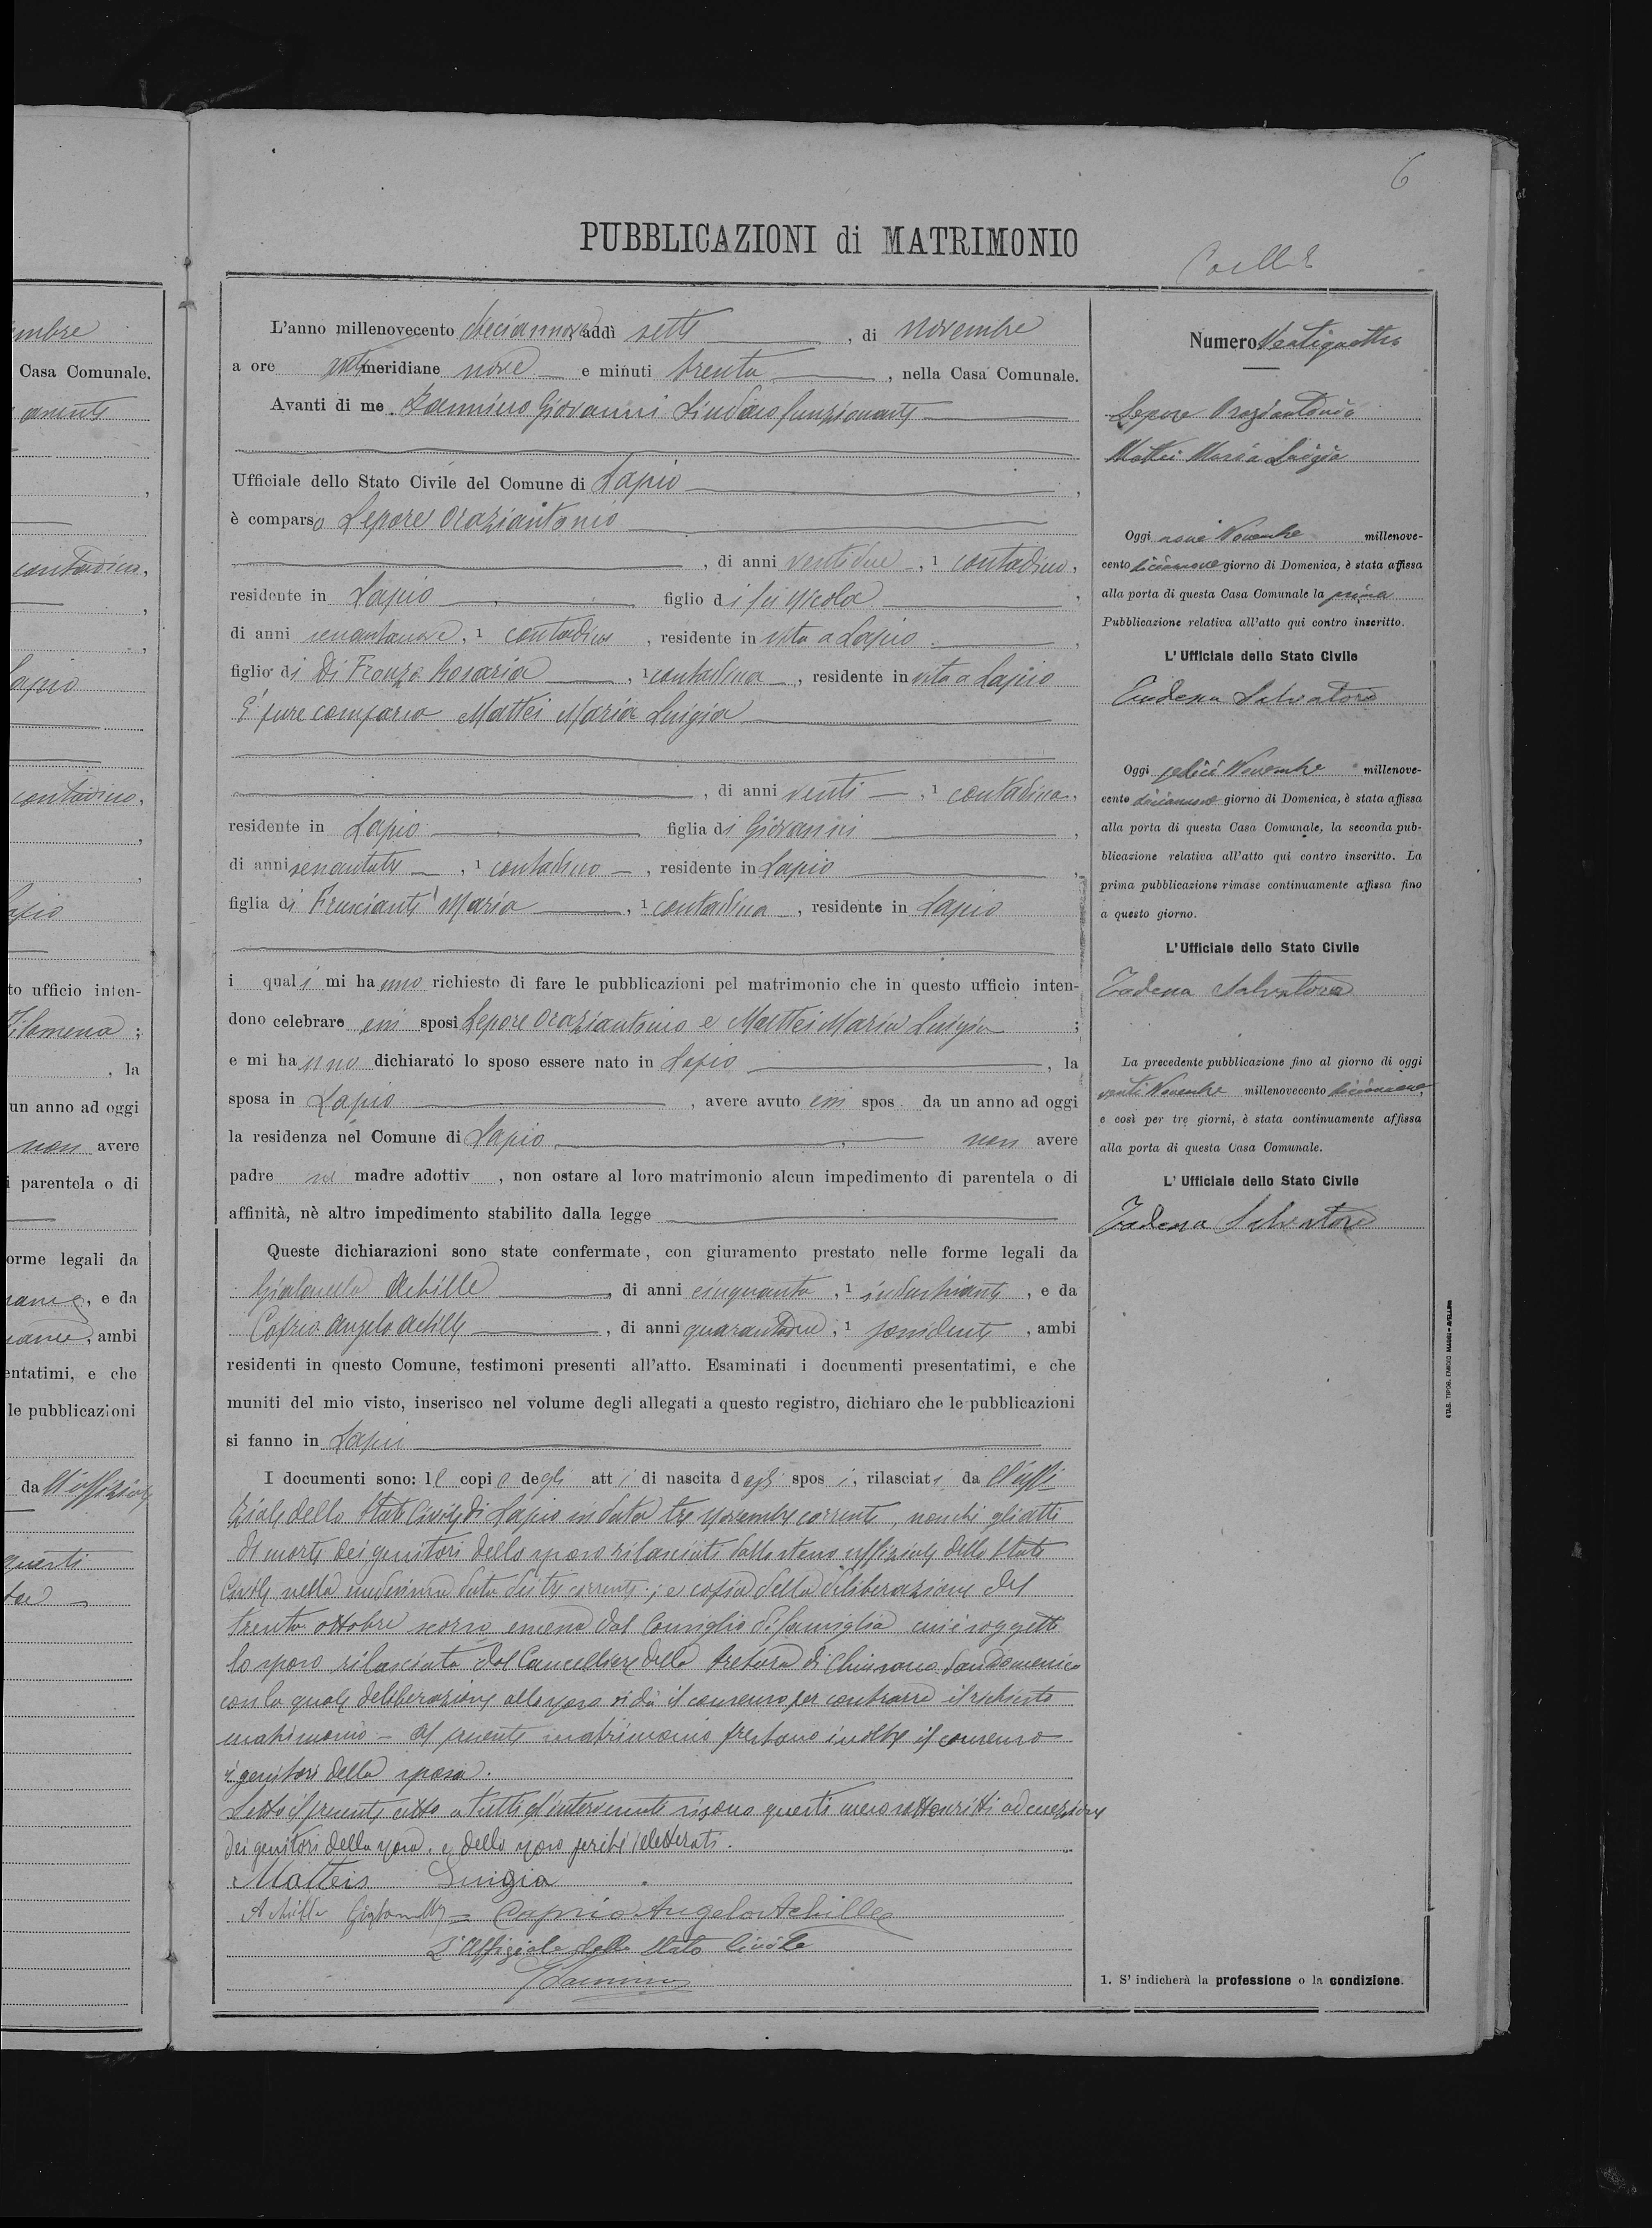 6
PUBBLICAZIONI di MATRIMONIO
L'anno millenovecento diciannove addì sette , di novembre
a ore antimeridiane nove e minuti trenta , nella Casa Comunale.
Avanti di me Iannino Giovanni Sindaco funzionante
Ufficiale dello Stato Civile del Comune di Lapio ,
è comparso Lepore Oraziantonio
, di anni ventidue , 1 contadino,
residente in Lapio figlio di fu Nicola ,
di anni , 1 contadino , residente in vita a Lapio ,
figlio di Di Fronzo Rosaria , 1 contadina , residente in vita a Lapio
E' pure comparsa Mattei Maria Luigia
, di anni venti , 1 contadina,
residente in Lapio figlia di Giovanni ,
di anni sessantatre , 1 contadino , residente in Lapio ,
figlia di Fruscianti Maria , 1 contadina , residente in Lapio
i quali mi hanno richiesto di fare le pubblicazioni pel matrimonio che in questo ufficio inten-
dono celebrare essi sposi Lepore Oraziantonio e Mattei Maria Luigia ;
e mi hanno dichiarato lo sposo essere nato in Lapio , la
sposa in Lapio , avere avuto essi spos da un anno ad oggi
la residenza nel Comune di Lapio non avere
padre nè madre adottiv , non ostare al loro matrimonio alcun impedimento di parentela o di
affinità, nè altro impedimento stabilito dalla legge
Queste dichiarazioni sono state confermate, con giuramento prestato nelle forme legali da
Achille , di anni cinquanta , 1 industriante , e da
Caprio Angelo Achille , di anni , 1 possidente , ambi
residenti in questo Comune, testimoni presenti all'atto. Esaminati i documenti presentatimi, e che
muniti del mio visto, inserisco nel volume degli allegati a questo registro, dichiaro che le pubblicazioni
si fanno in Lapio
I documenti sono: le copie degli atti di nascita degli sposi, rilasciati da ll'uffi
ziale dello Stato Civile di Lapio in data tre novembre corrente, nonchè gli atti
di morte dei genitori dello sposo rilasciati dallo stesso uffiziale dello Stato
Civile nella medesima data del tre corrente; e copia della deliberazione del
trenta ottobre scorso emessa dal Consiglio di famiglia cui è soggetto
lo sposo rilasciata dal Cancelliere della Pretura di Chiusano San Domenico
con la quale deliberazione allo sposo si dà il consenso per contrarre il richiesto
matrimonio - Al presente matrimonio prestano inoltre il consenso
i genitori della sposa.
Letto il presente atto a tutti gl'intervenuti si sono questi meco sottoscritti ad eccezione
dei genitori della sposa e dello sposo perchè illetterati.
Matteis Luigia
Achille Caprio Angelo Achille
L'Uffiziale dello Stato Civile
Iannino
Numero Ventiquattro
Lepore Oraziantonio
Mattei Maria Luigia
Oggi nove Novembre millenove-
cento diciannove giorno di Domenica, è stata affissa
alla porta di questa Casa Comunale la prima
Pubblicazione relativa all'atto qui contro inscritto.
L'Ufficiale dello Stato Civile
Salvatore
Oggi sedici Novembre millenove-
cento diciannove giorno di Domenica, è stata affissa
alla porta di questa Casa Comunale, la seconda pub-
blicazione relativa all'atto qui contro inscritto. La
prima pubblicazione rimase continuamente affissa fino
a questo giorno.
L'Ufficiale dello Stato Civile
Salvatore
La precedente pubblicazione fino al giorno di oggi
venti Novembre millenovecento diciannove,
e così per tre giorni, è stata continuamente affissa
alla porta di questa Casa Comunale.
L'Ufficiale dello Stato Civile
Salvatore
1. S' indicherà la professione o la condizione.
STAB. TIPOG. EMIDIO MAGGI - AVELLINO
embre
Casa Comunale.
contadina,
Lapio
contadino,
to ufficio inten-
Filomena ;
, la
un anno ad oggi
non avere
i parentela o di
orme legali da
, e da
, ambi
entatimi, e che
le pubblicazioni
da ll'uffiziale
questi